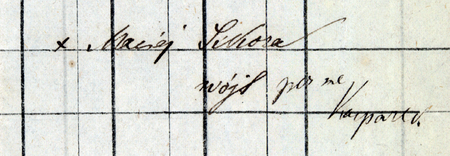 x Maciej Sikora
wójt per me
Kacparek